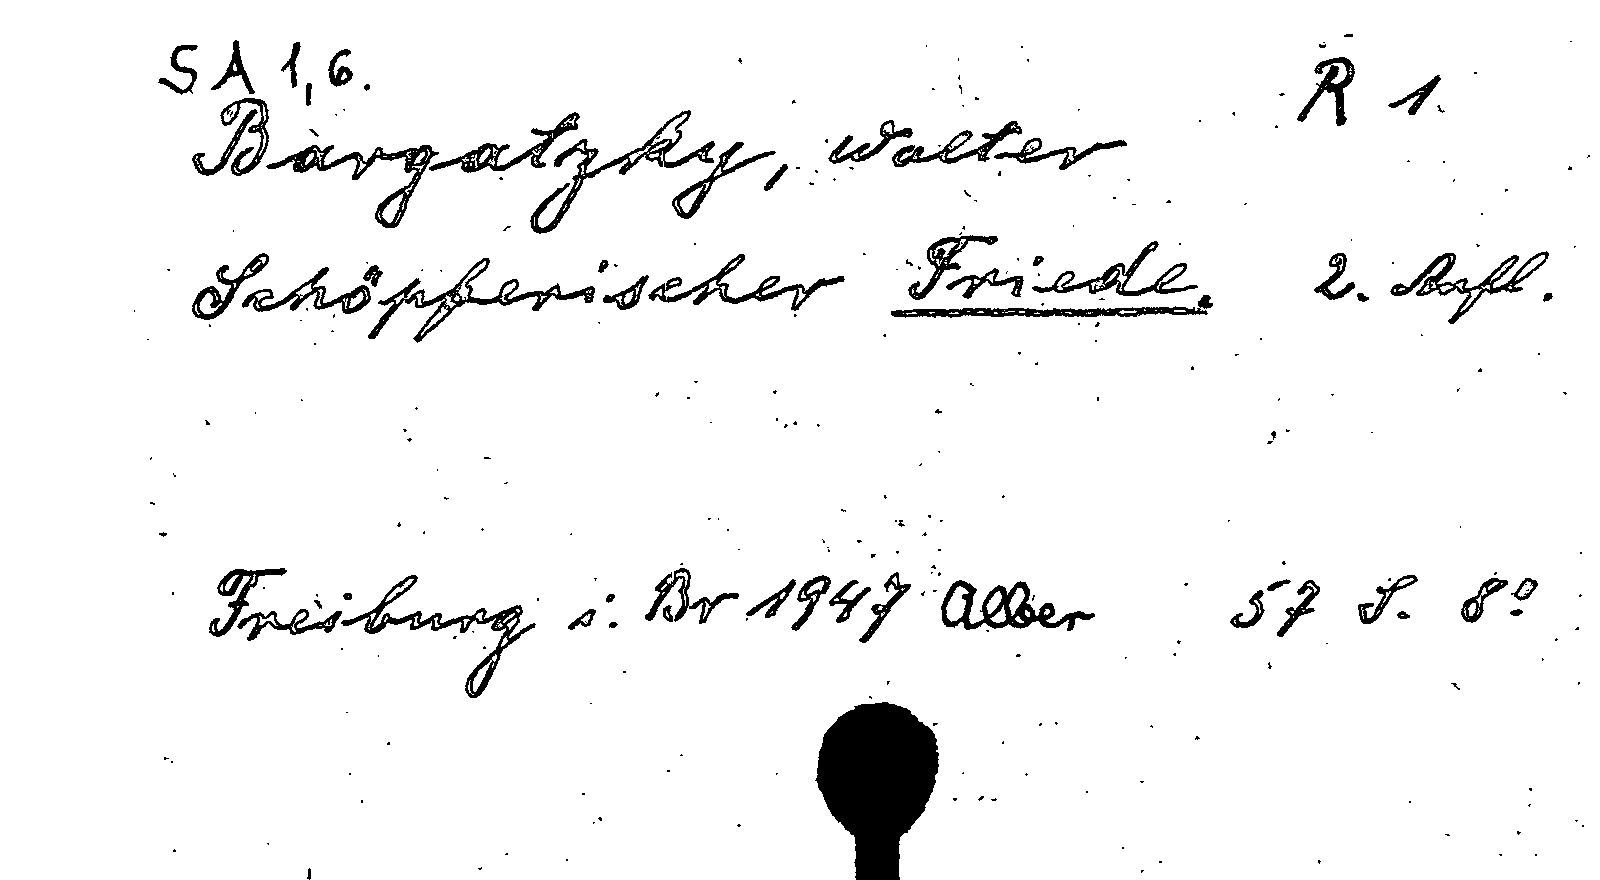 SA 1,6.
R 1
Bargatzky, Walter
Schöpferischer Friede. 2. Aufl.
Freiburg i. Br 1947 Alber 57 S. 8°